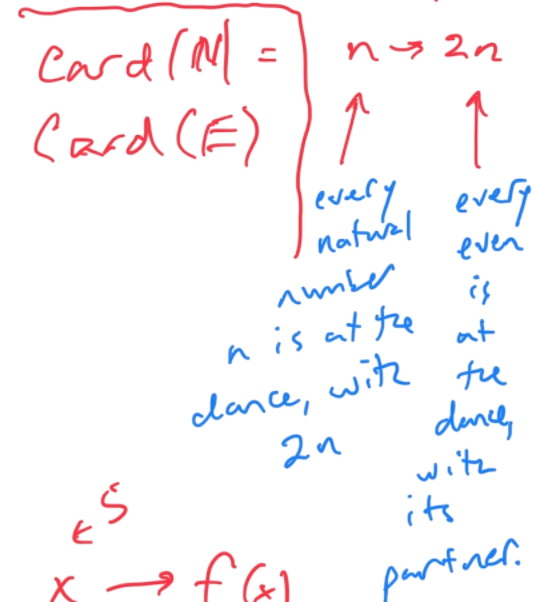 Card(ℕ) =
Card(E)
n → 2n
every
natural
number
n is at the
dance, with
2n
every
even
is
at
the
dance,
with
its
partner.
∈ S
x → f(x)